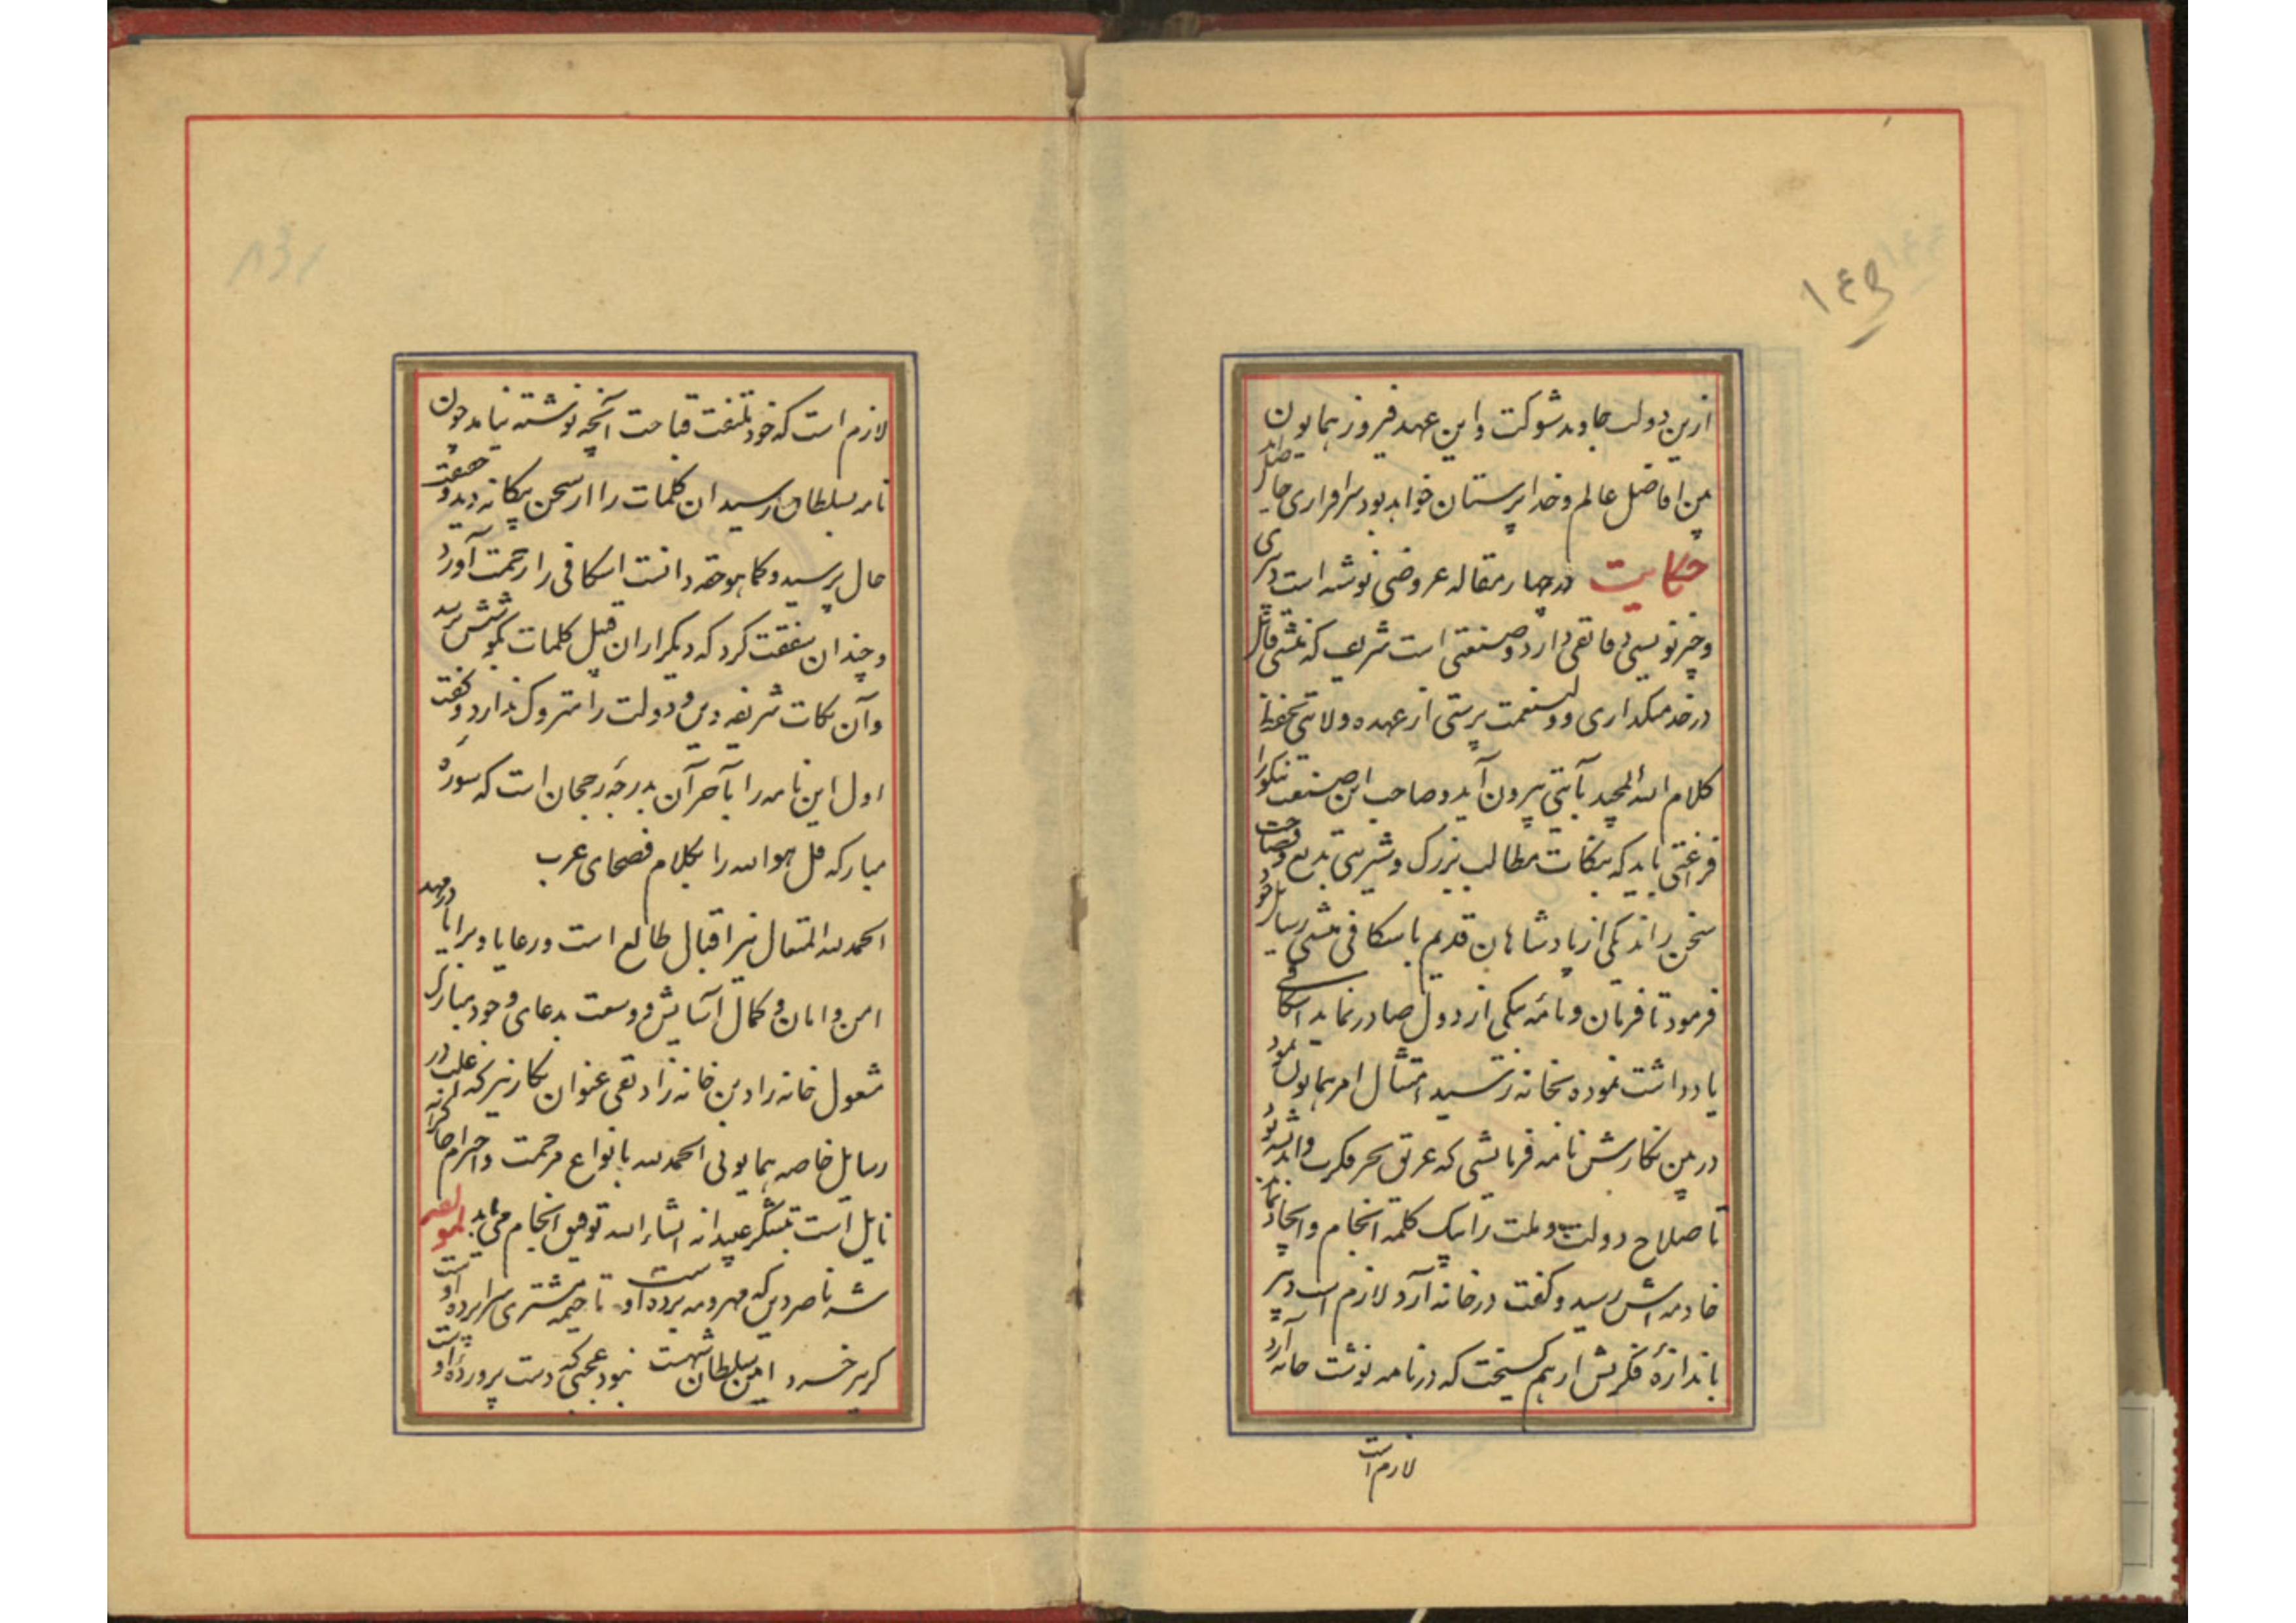 ۱۴۵
ازین دولت جاوید شوکت و این عهد فیروز همایون
بین افاضل عالم و خدا پرستان خواهد بود سرافرازی حاصل آید
حکایت در چهار مقاله عروضی نوشته است دبیری
و خبر نویسی دارد و صنعتی است شریف که منشی قابل
در خدمتگذاری و ولینعمت پرستی از عهده ولایتی بحفظ
کلام الله المجید بآیتی بیرون آید و صاحب این صنعت نیکو را
فراغتی باید که بنکات مطالب بزرک و شیرینی بدیع و فصاحت
سخن راند یکی از پادشاهان قدیم باسکافی منشی رسایل خود
فرمود تا فرمان و نامهٔ بیکی از دول صادر نماید اسکافی
یادداشت نموده بخانه رسید امتثال امر همایون نمود
در بین نکارش نامه فرمایشی که غرق بحر فکرت و اندیشه بود
تا صلاح دولت و ملت را بیک کلمه انجام و انجاز نماید
خادمه اش رسید و کفت در خانه آرد لازم است دبیر
باندازهٔ فکرش از هم کسیخت که در نامه نوشت خانه آرد
لازم است
لازم است که خود ملتفت قباحت آنچه نوشته نیامد چون
نامه بسلطان رسید ان کلمات را از سخن بیکانه دید و حقیقت
حال پرسید و کما هو حقه دانست اسکافی را رحمت آورد
و چندان شفقت کرد که دیکر از ان قبیل کلمات بکوشش نرسد
و آن نکات شریفه دین و دولت را متروک ندارد و کفت
اول این نامه را بآخر آن بدرجهٔ رجحان است که سورهٔ
مبارکه قل هو الله را بکلام فصحای عرب
الحمد لله المتعال نیر اقبال طالع است و رعایا و برایا در مهد
امن و امان و کمال آسایش و وسعت بدعای وجود مبارک
مشغول خانه زاد بن خانه زاد تقی عنوان نکار نیز که اغلب در
رسایل خاصه همایونی الحمد لله بانواع مرحمت و احترام
نایل است بتشکر عبیدانه انشاء الله توفیق انجام می یابد لمولفه
شه ناصر دین که مهر و مه برده اوست تا خیمه مشتری سراپرده اوست
کر بر خسرو امین سلطان شهست نبود عجبی که دست پروردهٔ اوست